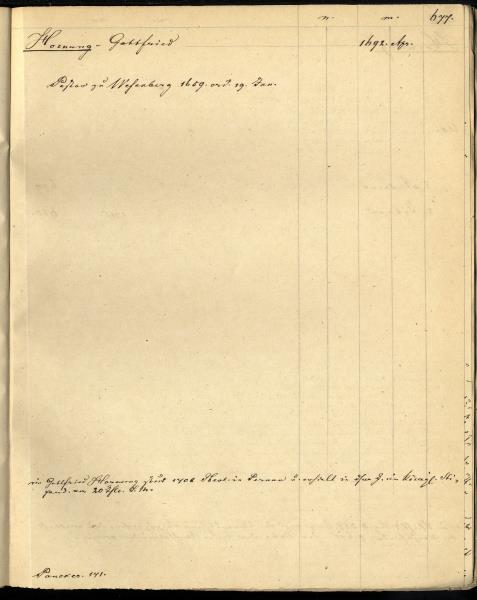 n. m. 677.
Hornung - Gottfried 1692. Apr.
Pastor zu Wesenberg 1659. ord 19. Jan.
ein Gottfried Hornung 1706 Theol. in Pernau u. erhielt in
20 Thlr. S. M.
Paucker. 141.